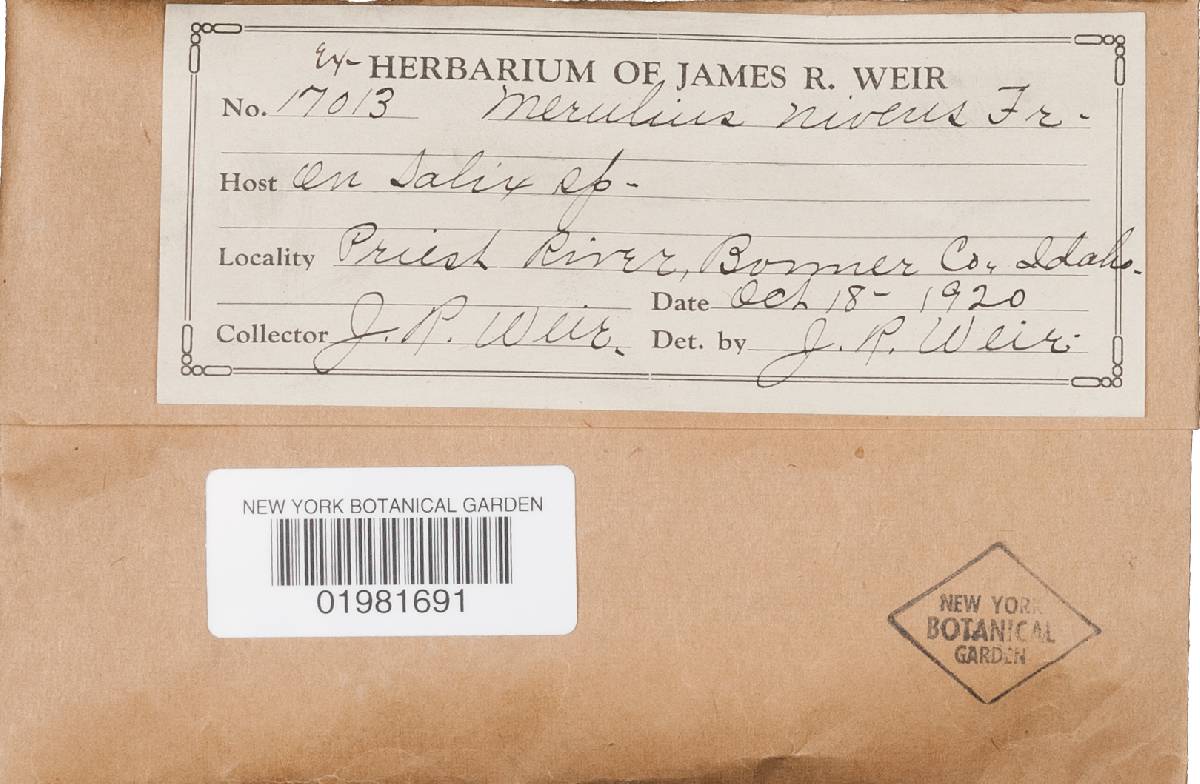 Ex- HERBARIUM OF JAMES R. WEIR
No. 17013 Merulius niveus Fr.
Host on Salix sp.
Locality Priest River, Bonner Co., Idaho.
Date Oct 18-1920
Collector J. R. Weir. Det. by J. R. Weir
NEW YORK BOTANICAL GARDEN
01981691
NEW YORK
BOTANICAL
GARDEN